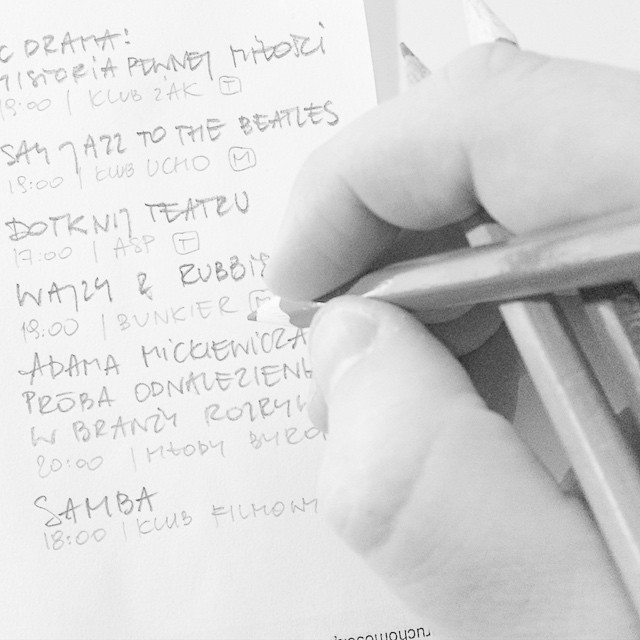 C DRAMA!
HISTORIA PEWNEJ MIŁOŚCI
19:00 | KLUB ŻAK T
SAY JAZZ TO THE BEATLES
19:00 | KLUB UCHO M
DOTKNIJ TEATRU
17:00 | ASP T
WAJZY &
19:00 | BUNKIER M
ADAMA MICKIEWICZA
PRÓBA
W BRANŻY
20:00 | MŁODY BYRON
SAMBA
18:00 | KLUB FILMOWY